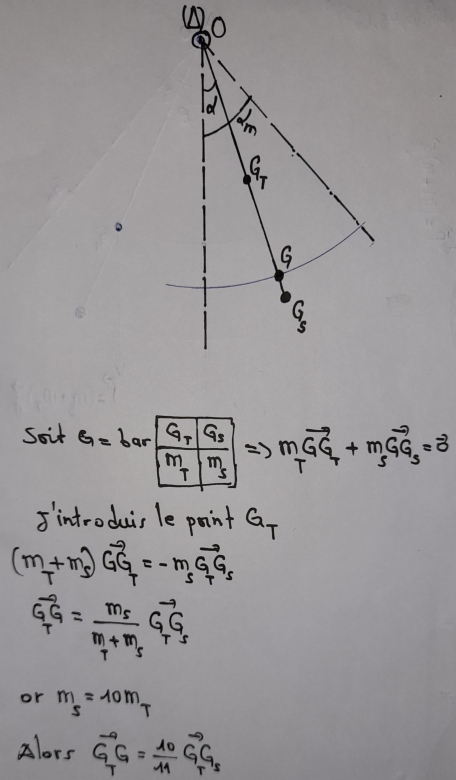 (Δ) O
α
αm
G_T
G
G_S
Soit G = bar G_T G_S => m_T GG_T→ + m_S GG_S→ = 0→
m_T m_S
J'introduis le point G_T
(m_T + m_S) GG_T→ = - m_S G_TG_S→
G_TG→ = m_S / (m_T + m_S) G_TG_S→
or m_S = 10 m_T
Alors G_TG→ = 10/11 G_TG_S→